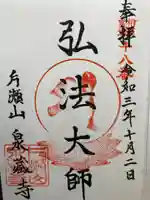 奉拝
令和三年十月二日
弘法大師
片瀬山
泉蔵寺